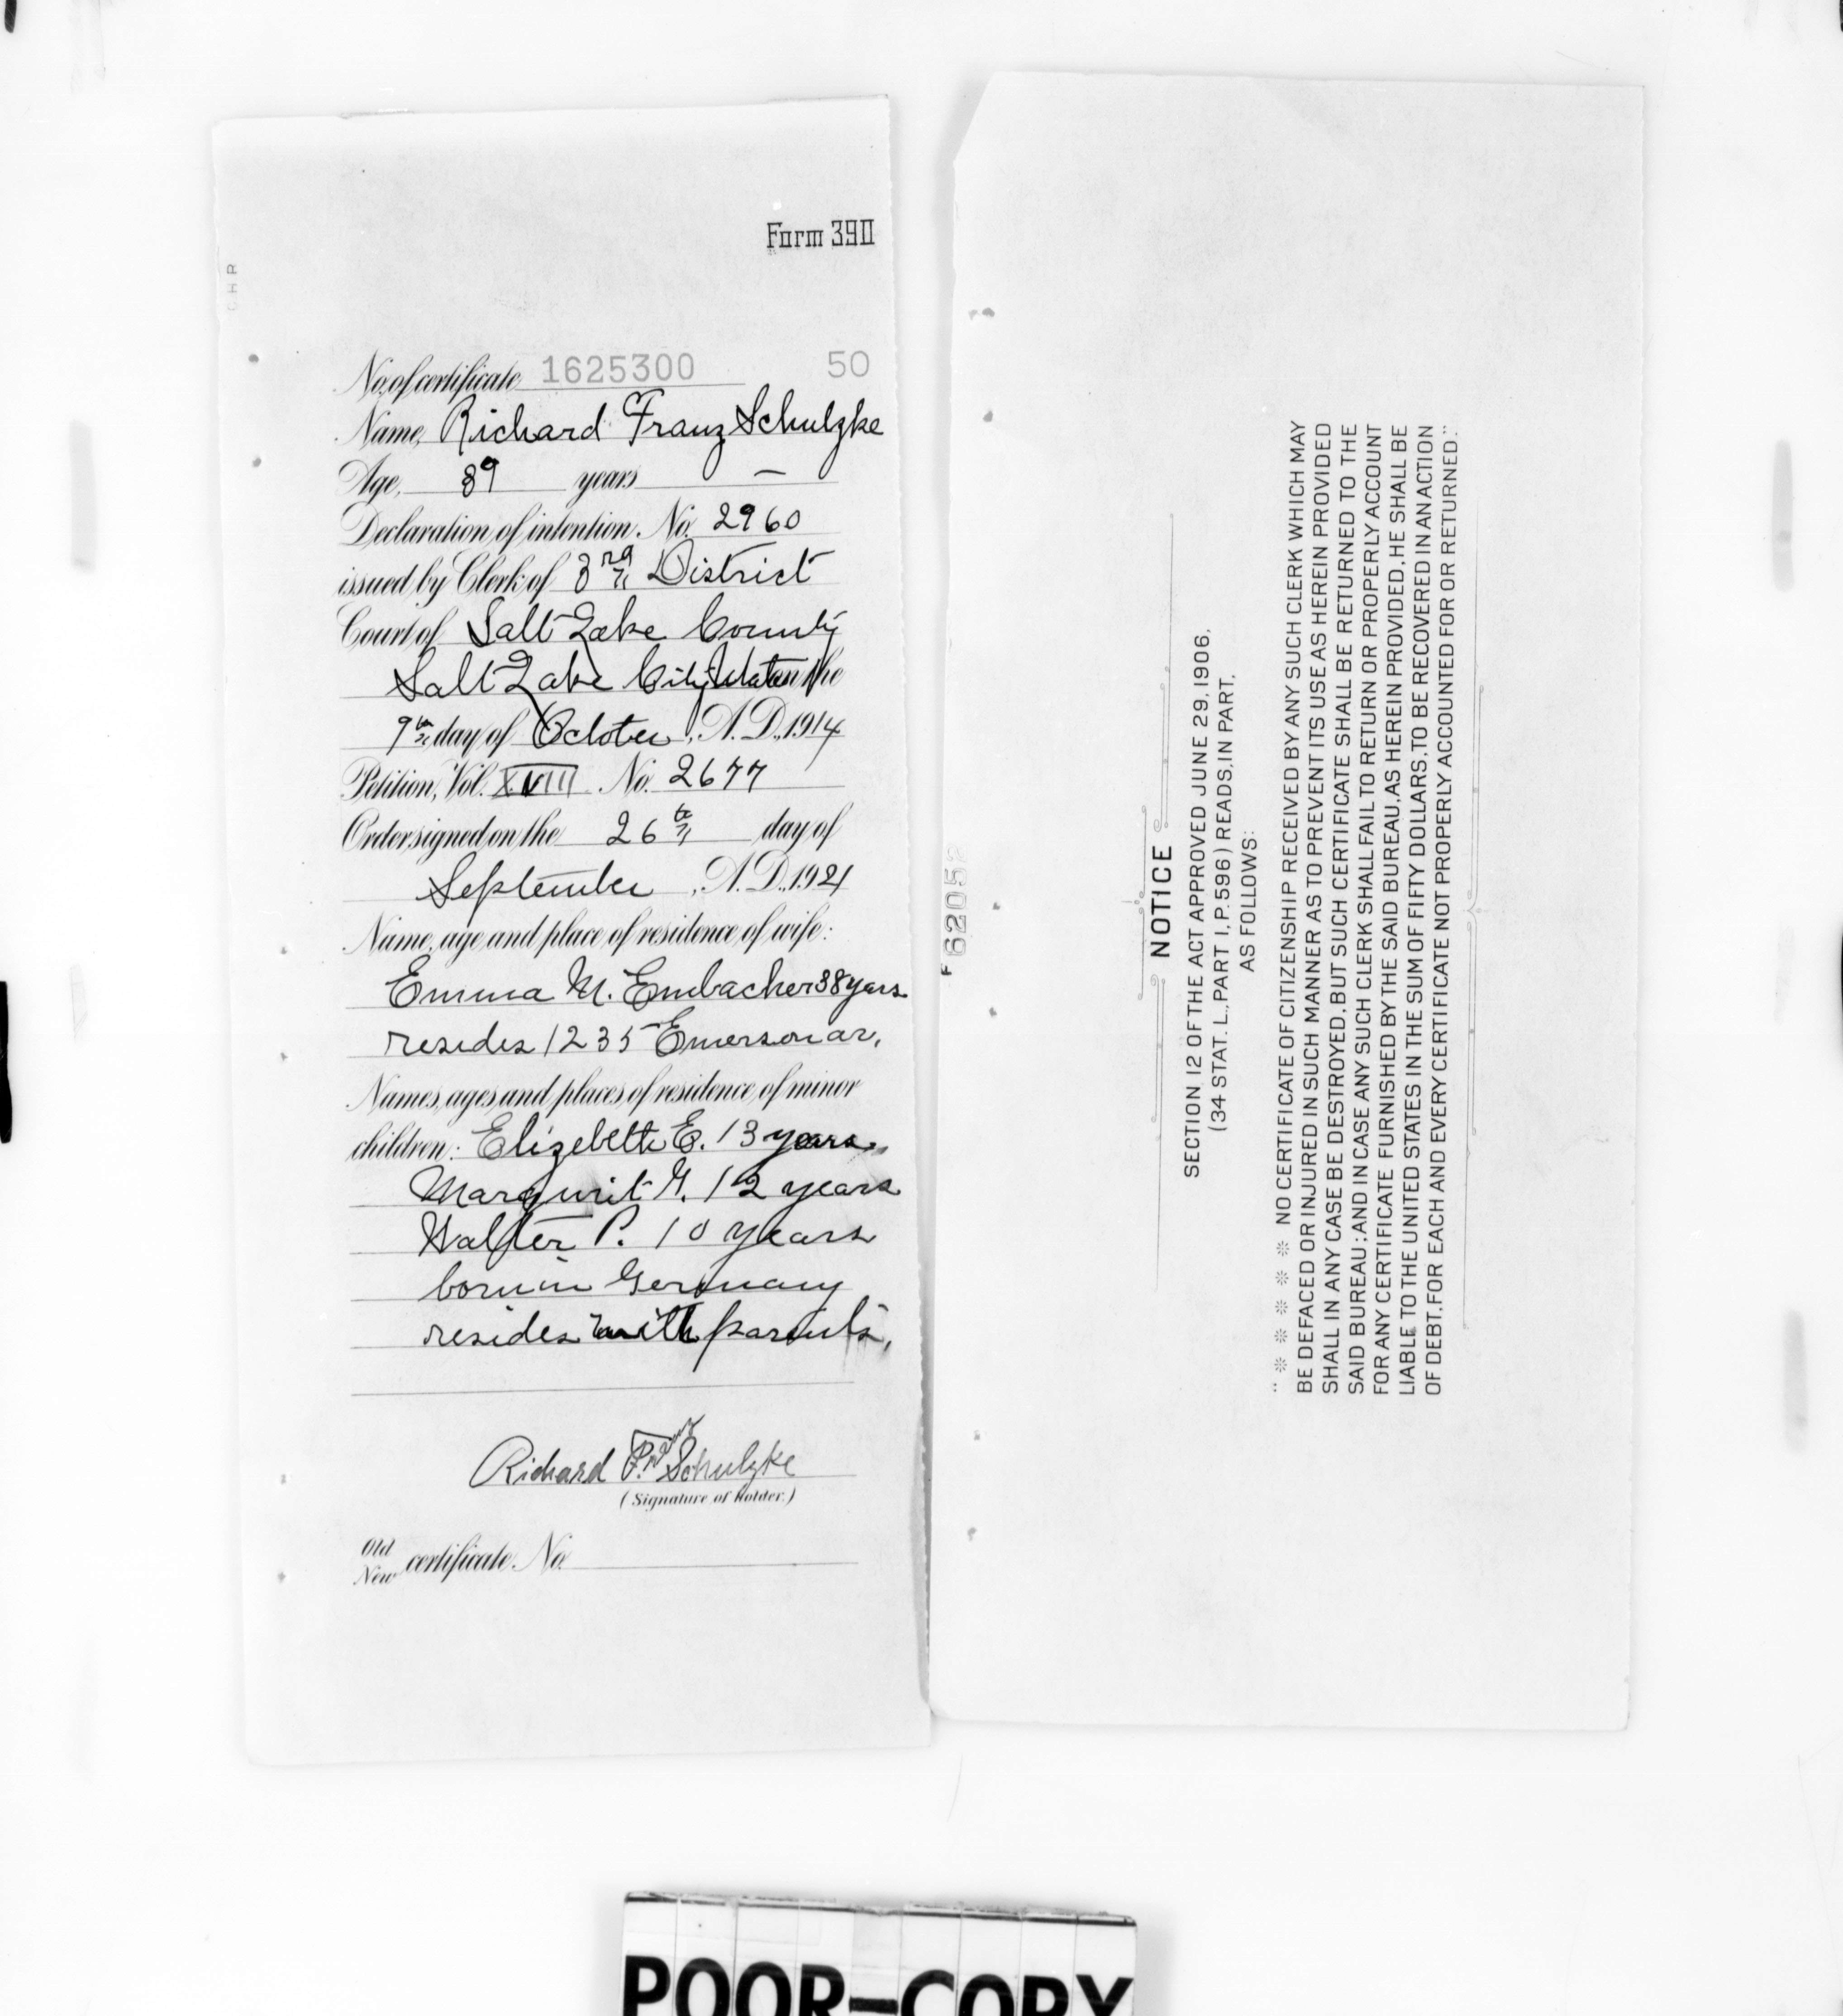 Form 390
CHR
No. of certificate 1625300 50
Name, Richard Franz Schulzke
Age, 39 years —
Declaration of intention, No. 2960
issued by Clerk of 3rd District
Court of Salt Lake County
Salt Lake City Utah on the
9th day of October, A.D., 1914
Petition, Vol. XVIII No. 2677
Order signed on the 26th day of
September, A.D., 1921
Name, age and place of residence of wife:
Emma M. Embacher 38 years
resides 1235 Emerson av.
Names, ages and places of residence of minor
children: Elizebeth E. 13 years
Margurit G. 12 years
Walter P. 10 years
born in Germany
resides with parents.
Richard Franz Schulzke
(Signature of Holder.)
Old
New certificate No.
F 62052
NOTICE
SECTION 12 OF THE ACT APPROVED JUNE 29, 1906,
(34 STAT. L., PART I, P. 596) READS, IN PART,
AS FOLLOWS:
" * * * * * NO CERTIFICATE OF CITIZENSHIP RECEIVED BY ANY SUCH CLERK WHICH MAY
BE DEFACED OR INJURED IN SUCH MANNER AS TO PREVENT ITS USE AS HEREIN PROVIDED
SHALL IN ANY CASE BE DESTROYED, BUT SUCH CERTIFICATE SHALL BE RETURNED TO THE
SAID BUREAU; AND IN CASE ANY SUCH CLERK SHALL FAIL TO RETURN OR PROPERLY ACCOUNT
FOR ANY CERTIFICATE FURNISHED BY THE SAID BUREAU, AS HEREIN PROVIDED, HE SHALL BE
LIABLE TO THE UNITED STATES IN THE SUM OF FIFTY DOLLARS, TO BE RECOVERED IN AN ACTION
OF DEBT, FOR EACH AND EVERY CERTIFICATE NOT PROPERLY ACCOUNTED FOR OR RETURNED."
POOR-COPY